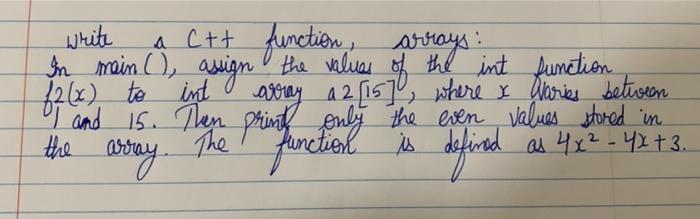 write a C++ function, arrays:
In main(), assign the values of the int function
f2(x) to int array a2[15], where x Varies between
1 and 15. Then print only the even values stored in
the array. The function is defined as 4x² - 4x + 3.